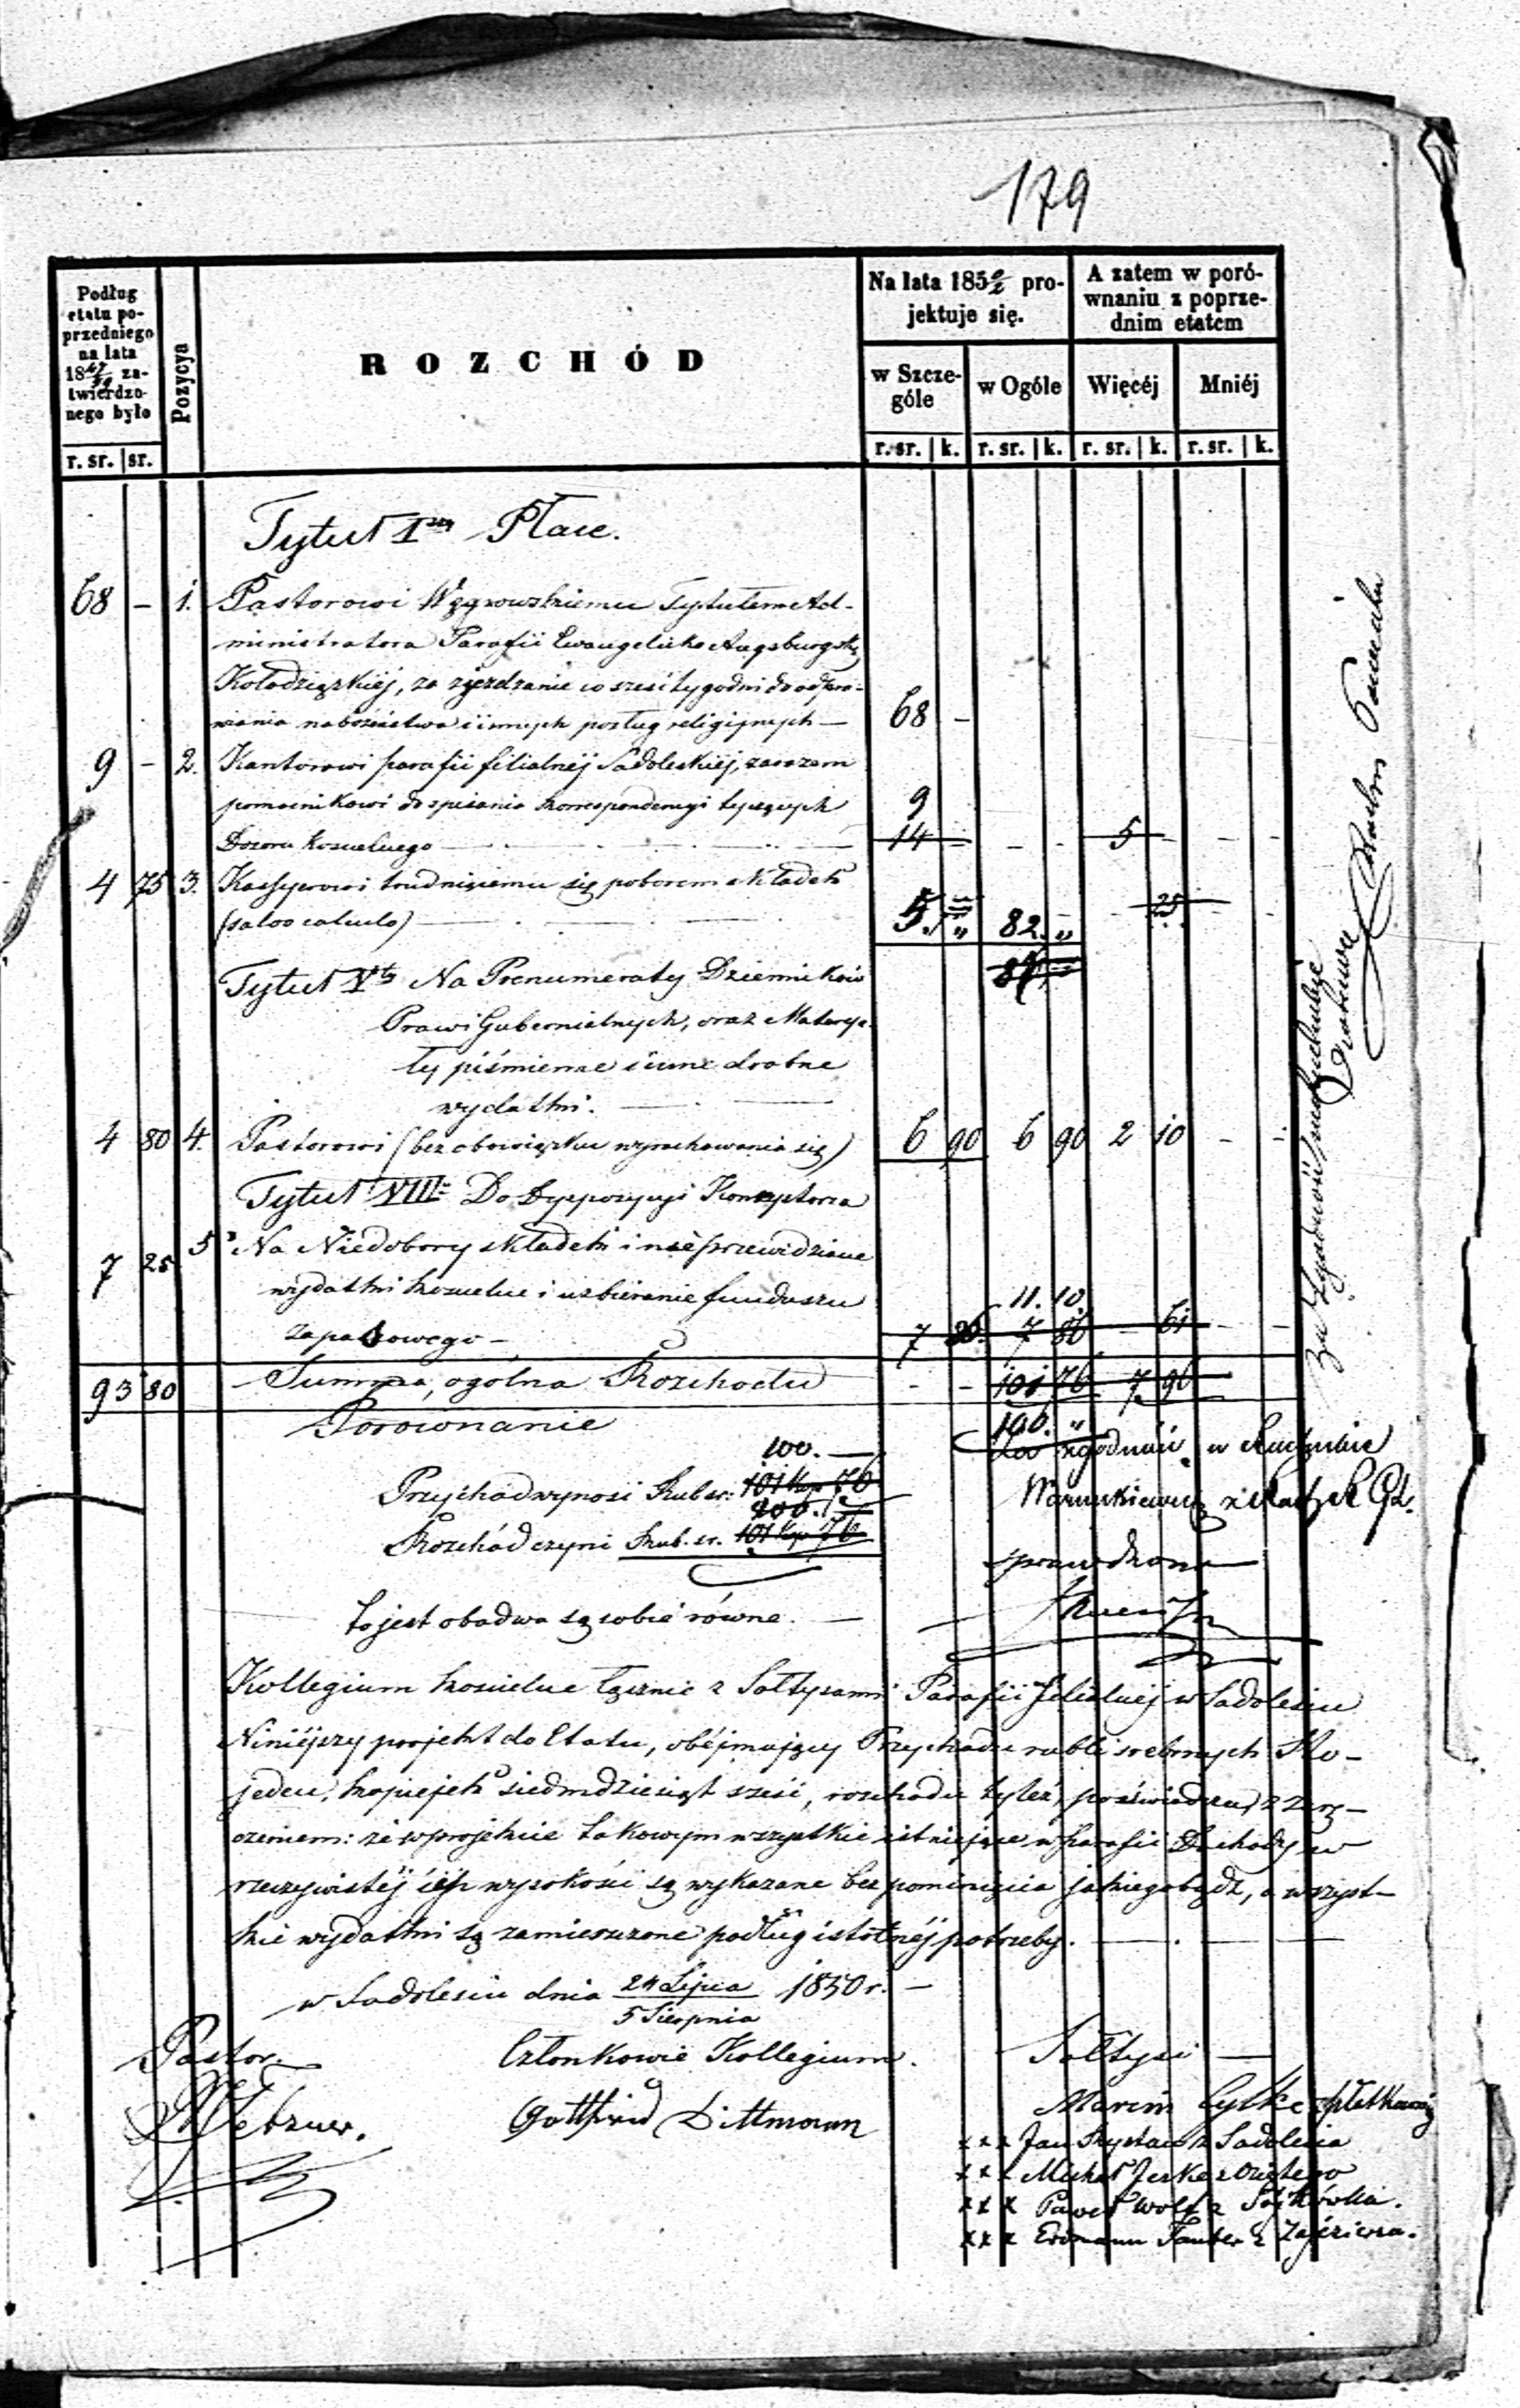 179
Podług
etatu po-
przedniego
na lata
18 47/49 za-
twierdzo-
nego było
r. sr. sr.
Pozycya
ROZCHÓD
Na lata 185 0/2 pro-
jektuje się.
w Szcze-
góle
w Ogóle
r. sr. k. r. sr. k.
A zatem w poró-
wnaniu z poprze-
dnim etatem
Więcéj Mniéj
r. sr. k. r. sr. k.
Tytuł I Płace.
68 – 1. Pastorowi Węgrowskiemu Tytułem Ad-
ministratora Parafii Ewangelicko Augsburgskiej
Kołodziązkiéj, za zjezdzanie co sześć tygodni do odpra-
wiania nabożeństwa i innych posług religijnych — 68 –
9 – 2. Kantorowi parafii filialnéj Sadoleskiéj, zarazem
pomocnikowi do spisania korrespondencyi tyczących 9
Dozoru kościelnego — 14 – – – 5 – – –
4 75 3. Kassyerowi trudniącemu się poborem składek
(salvo calculo) — 5. „ 82. „ – 25 – –
87
Tytuł V Na Prenumeraty Dzienników
Praw i Gubernialnych, oraz Materya-
ły piśmienne i inne drobne
wydatki.
4 80 4. Pastorowi (bez obowiązku wyrachowania się) 6 90 6 90 2 10 – –
Tytuł VIII Do Dyspozycyi
7 25 5 Na Niedobory składek i nieprzewidziane
wydatki kościelne i uzbieranie funduszu 11. 10.
zapasowego – 7 86 7 86 – 61 – –
93 80 Summa, ogólna Rozchodu – – 101 76 7 96
100. „
Porównanie
100. —
Przychód wynosi Rub sr: 101 Kop 76
100. —
Rozchód czyni Rub. sr. 101 Kop 76
to jest obadwa są sobie równe. —
Za zgodność w Rachubie
sprawdzono
Kollegium kościelne łącznie z Sołtysami Parafii filialnéj w Sadolesiu
Niniéjszy projekt do Etatu, obéjmujący Przychodu rubli srebrnych Sto-
jeden, kopiejek siedmdziesiąt sześć, rozchodu tyleż, poświadcza, z zarę-
czeniem: że w projekcie takowym wszystkie istniejące w parafii Dochody w
rzeczywistéj ich wysokości są wykazane bez pominięcia jakiegobądź, a wszyst-
kie wydatki są zamieszczone podług istotnéj potrzeby.
w Sadolesiu dnia 24 Lipca / 5 Sierpnia 1850 r. –
Pastor
Członkowie Kollegium.
Gottfried Dittmann
Sołtysi —
Marcin Cylke
x x x Jan z Sadolesia
x x x Michał Jerke
x x x Paweł Wolf z Sójkówka.
x x x Erdmann Tauber z Zajeziorza.